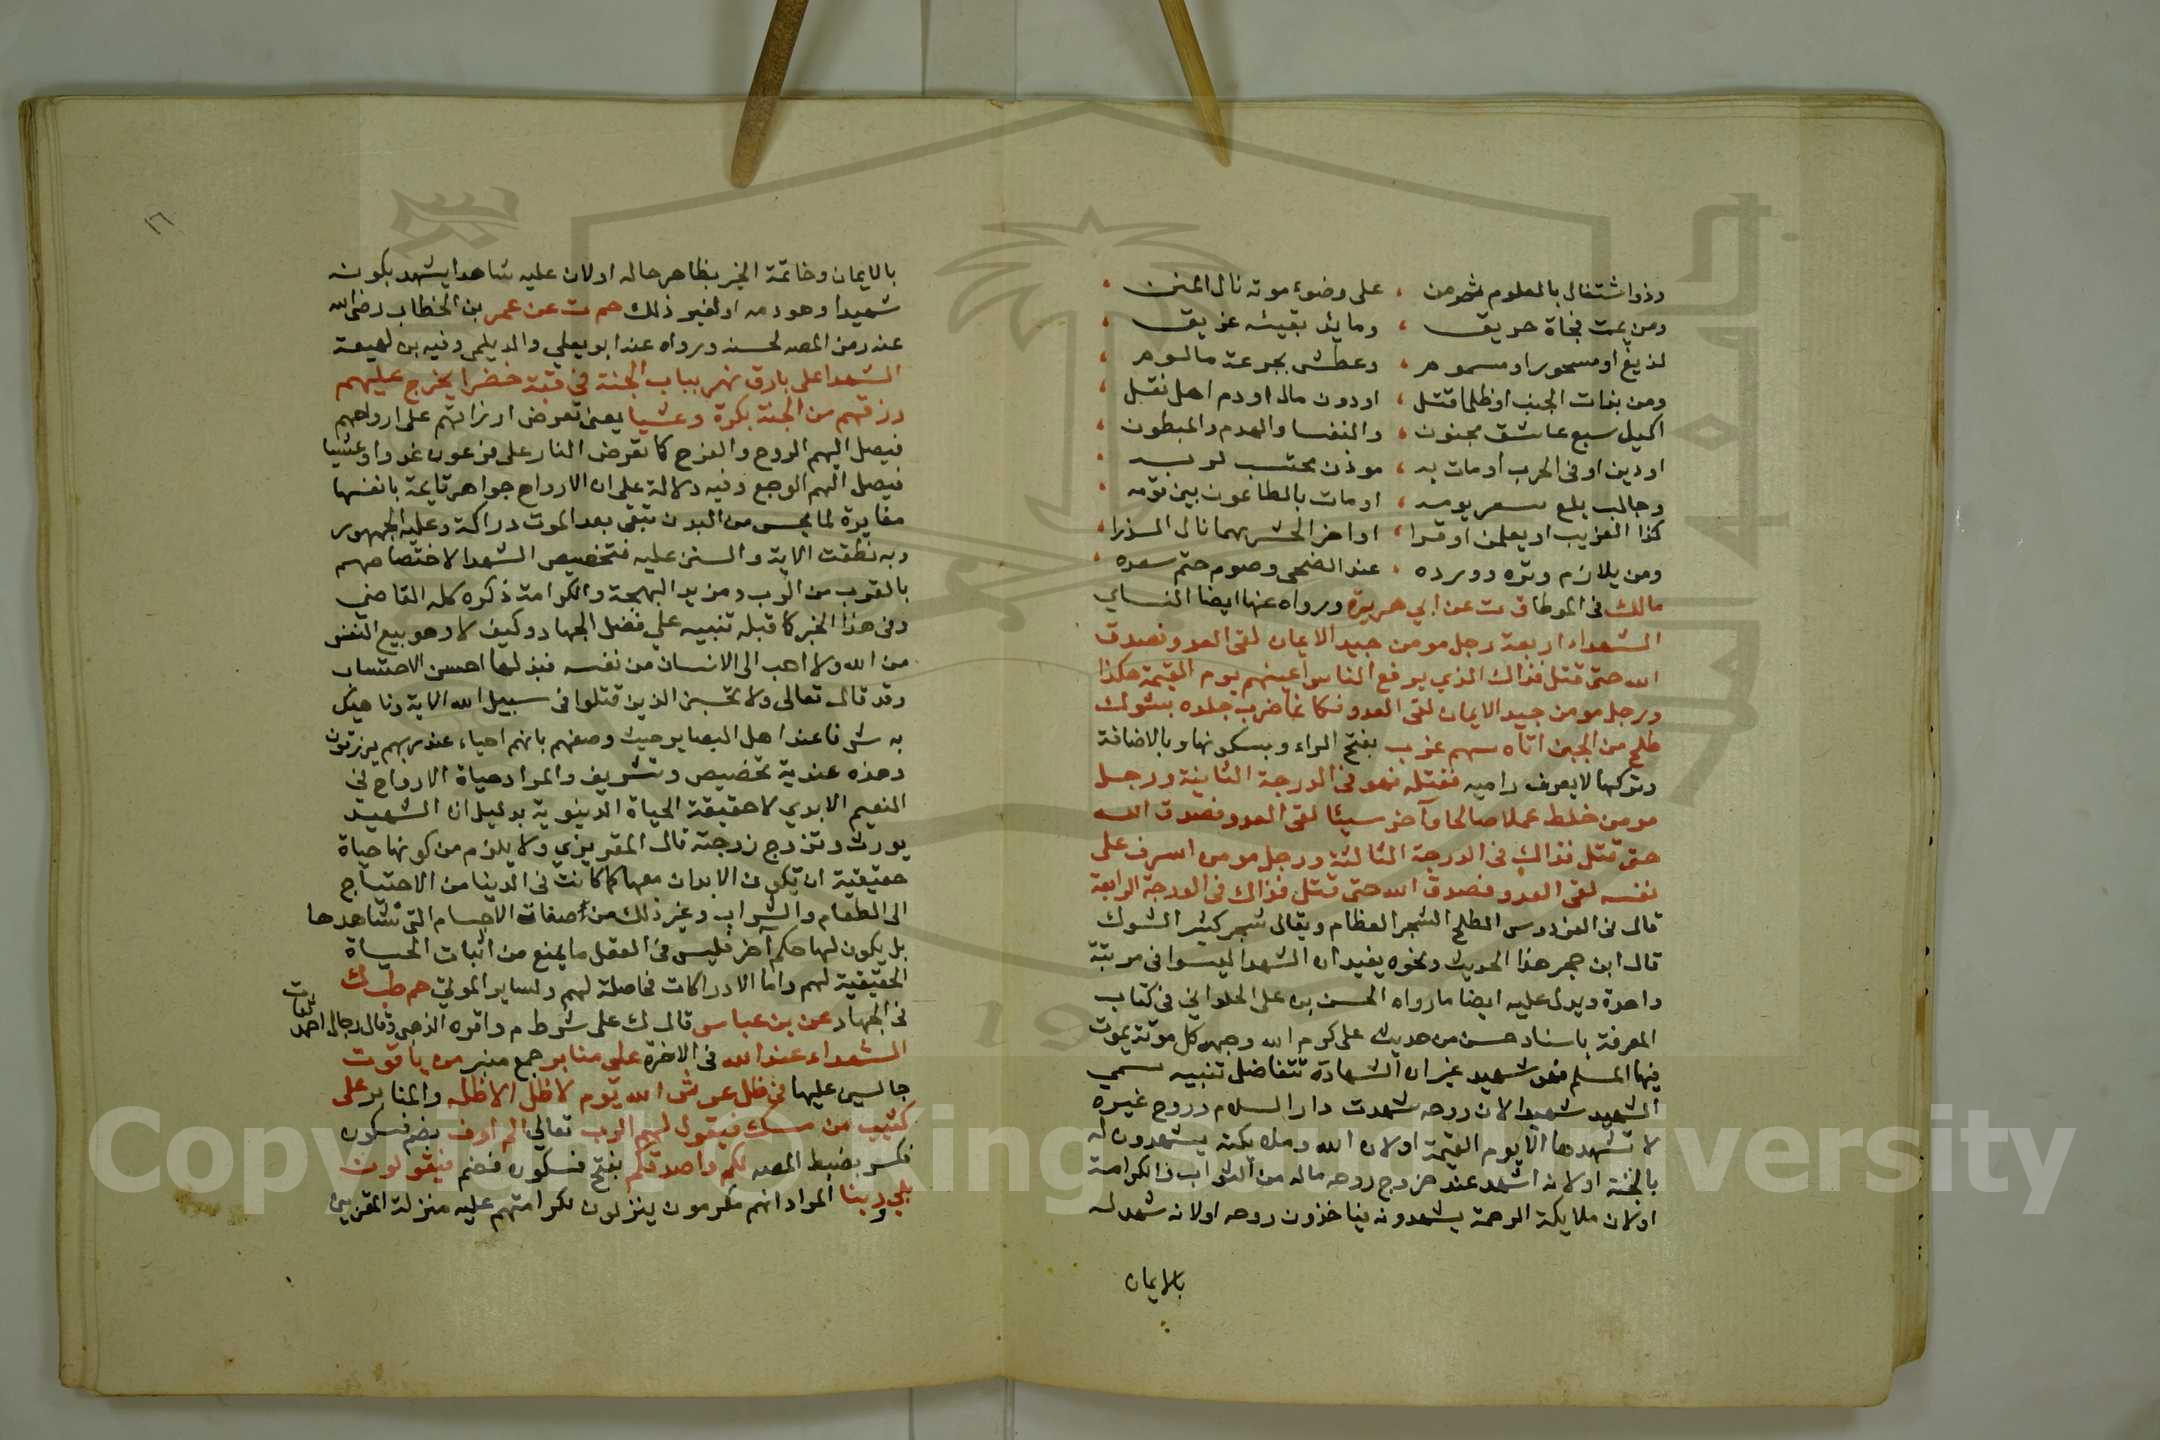 وذو اشتغال بالعلوم ثم من ، على وضوء موته نال المنن
ومن يمت فجاة حريق ، ومايد بقيئه غريق
لديغ او مسحور او مسموم ، وعطش بجرعة مالوم
ومن بذات الجنب او ظلما قتل ، او دون مال او دم اهل نقل
اكيل سبع عاشق مجنون ، والنفسا والهدم والمبطون
او دين او فى الحرب او مات به ، موذن محتسب لربه
وجالب يبع سعر يومه ، او مات بالطاعون بين قومه
كذا الغريب او يعلمن او قرا ، اواخر الحشر بهما نال الذرا
ومن يلازم وتره وورده ، عند الضحى وصوم حتم سعده
مالك فى الموطا ق ت عن ابي هريرة ورواه عنها ايضا النساي
الشهداء اربعة رجل مومن جيد الايمان لقى العدو فصدق
الله حتى قتل فذاك الذي يرفع الناس اعينهم يوم القيمة هكذا
ورجل مومن جيد الايمان لقى العدو فكانما ضرب جلده بشوك
طلح من الجبن اتاه سهم غرب بفتح الراء وبسكونها وبالاضافة
وتركها لا يعرف راميه فقتله فهو فى الدرجة الثانية ورجل
مومن خلط عملا صالحا وآخر سيئا لقى العدو فصدق الله
حتى قتل فذاك فى الدرجة الثالثة ورجل مومن اسرف على
نفسه لقى العدو فصدق الله حتى قتل فذاك فى الدرجة الرابعة
قال فى الفردوس الطلح الشجر العظام ويقال شجر كثير الشوك
قال ابن حجر هذا الحديث ونحوه يفيد ان الشهدا ليسوا فى مرتبة
واحدة ويدل عليه ايضا ما رواه الحسن بن على الحلواني فى كتاب
المعرفة باسناد حسن من حديث على كرم الله وجهه كل موتة يموت
فيها المسلم فهو شهيد غير ان الشهادة تتفاضل تنبيه سمي
الشهيد شهيدا لان روحه شهدت دار السلام وروح غيره
لا تشهدها الا يوم القيمة او لان الله وملايكته يشهدون له
بالجنة او لانه اشهد عند خروج روحه ماله من الثواب والكرامة
او لان ملايكة الرحمة يشهدونه فياخذون روحه او لانه شهد له
بالايمان
١٦
بالايمان وخاتمة الخير بظاهر حاله او لان عليه شاهدا يشهد بكونه
شهيدا وهو دمه او لغير ذلك حم ت عن عمر بن الخطاب رضى الله
عنه رمز المصه لحسنه ورواه عنه ابو يعلي والديلمى وفيه بن لهيعة
الشهدا على بارق نهر بباب الجنة فى قبة خضرا يخرج عليهم
رزقهم من الجنة بكرة وعشيا يعنى تعرض ارزاقهم على ارواحهم
فيصل اليهم الروح والفرح كما تعرض النار على فرعون غدوا وعشيا
فيصل الهم الوجع وفيه دلالة على ان الارواح جواهر قايمة بانفسها
مغايرة لما يحس من البدن تبقى بعد الموت دراكة وعليه الجمهور
وبه نطقت الاية والسنن عليه فتخصيص الشهدا لاختصاصهم
بالقرب من الرب ومزيد البهجة والكرامة ذكره كله القاضي
وفى هذا الخبر كما قبله تنبيه علي فضل الجهاد وكيف لا وهو بيع النفس
من الله ولا احب الى الانسان من نفسه فبذلها احسن الاحتساب
وقد قال تعالى ولا تحسبن الذين قتلوا فى سبيل الله الاية وناهيك
به شرفا عند اهل البصاير حيث وصفهم بانهم احياء عند ربهم يرزقون
وهذه عندية تخصيص وتشريف والمراد حياة الارواح فى
النعيم الابدي لا حقيقة الحياة الدينوية بدليل ان الشهيد
يورث وتزوج زوجته قال المقريزي ولا يلزم من كونها حياة
حقيقية ان تكون الابدان معها كما كانت فى الدينا من الاحتياج
الى الطعام والشراب وغير ذلك من صفات الاجسام التى نشاهدها
بل يكون لها حكم آخر فليس فى العقل ما يمنع من اثبات الحياة
الحقيقية لهم واما الادراكات فحاصلة لهم ولساير الموتى حم طب ك
فى الجهاد عن بن عباس قال ك على شرط م واقره الذهبى وقال رجال احمد
ثقات
الشهداء عند الله فى الاخرة على منابر جمع منبر من ياقوت
جالسين عليها فى ظل عرش الله يوم لا ظل الا ظله والمنابر على
كثيب من مسك فيقول لهم الرب تعالي الم اوف بضم فسكون
فكسر بضبط المصه لكم واصدقكم بفتح فسكون فضم فيقولون
بلى وربنا المراد انهم مكرمون ينزلون لكرامتهم عليه منزلة المقربين
Copyright © King Saud University